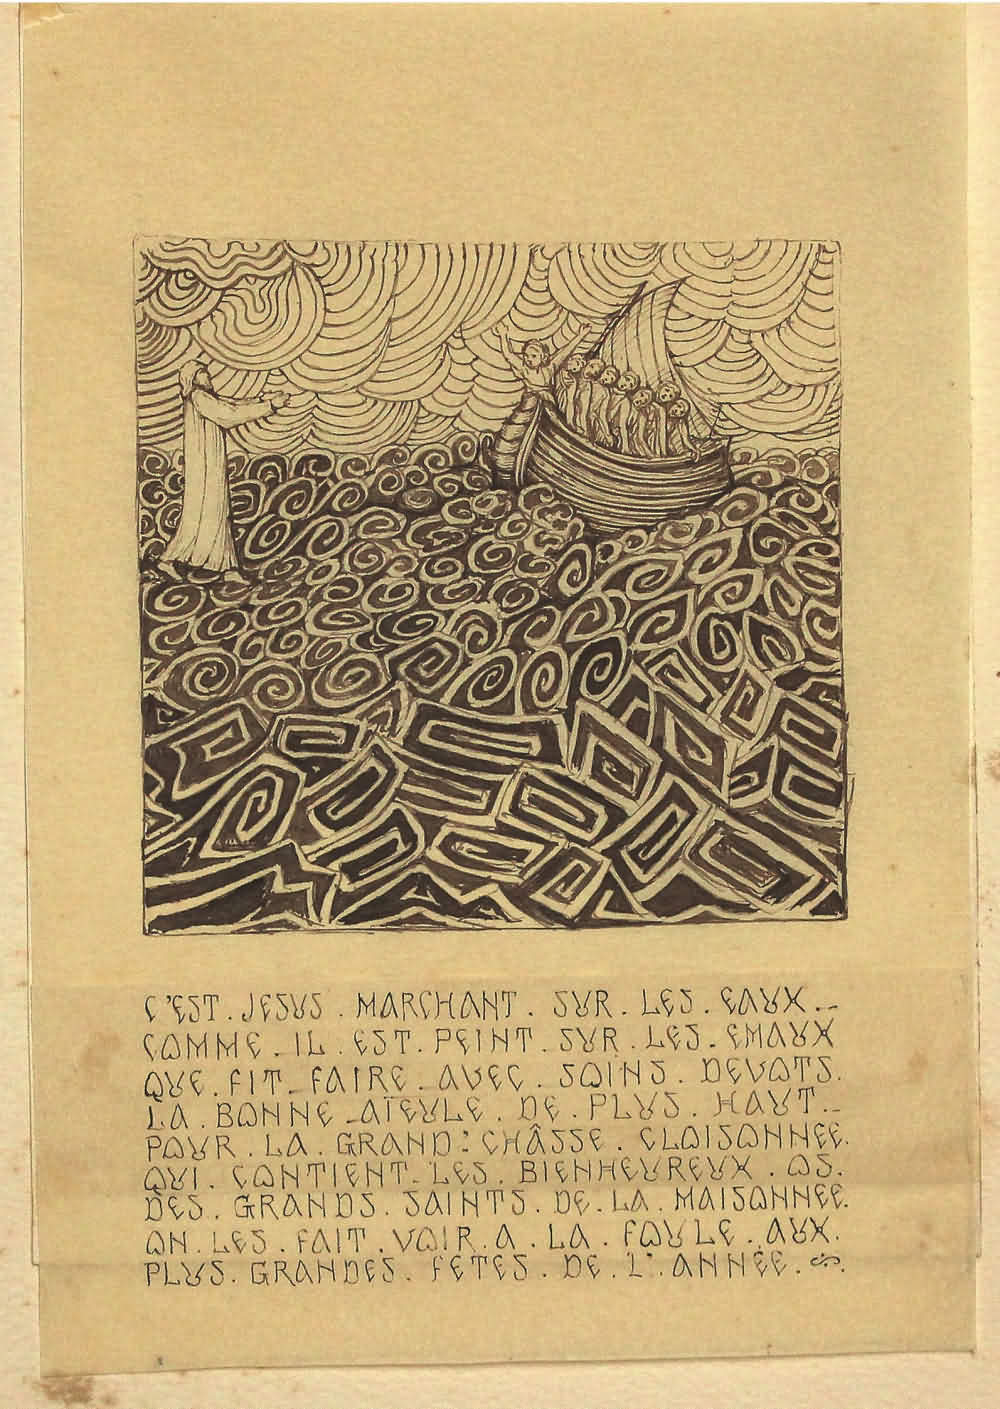 C'EST . JESUS . MARCHANT . SUR . LES . EAUX .
COMME . IL . EST . PEINT . SUR . LES . EMAUX
QUE . FIT . FAIRE . AVEC . SOINS . DEVOTS .
LA . BONNE . AÏEULE . DE . PLUS . HAUT .
POUR . LA . GRAND : CHÂSSE . CLOISONNEE .
QUI . CONTIENT . LES . BIENHEUREUX . OS .
DES . GRANDS . SAINTS . DE . LA . MAISONNEE .
ON . LES . FAIT . VOIR . A . LA . FOULE . AUX .
PLUS . GRANDES . FETES . DE . L'ANNÉE .